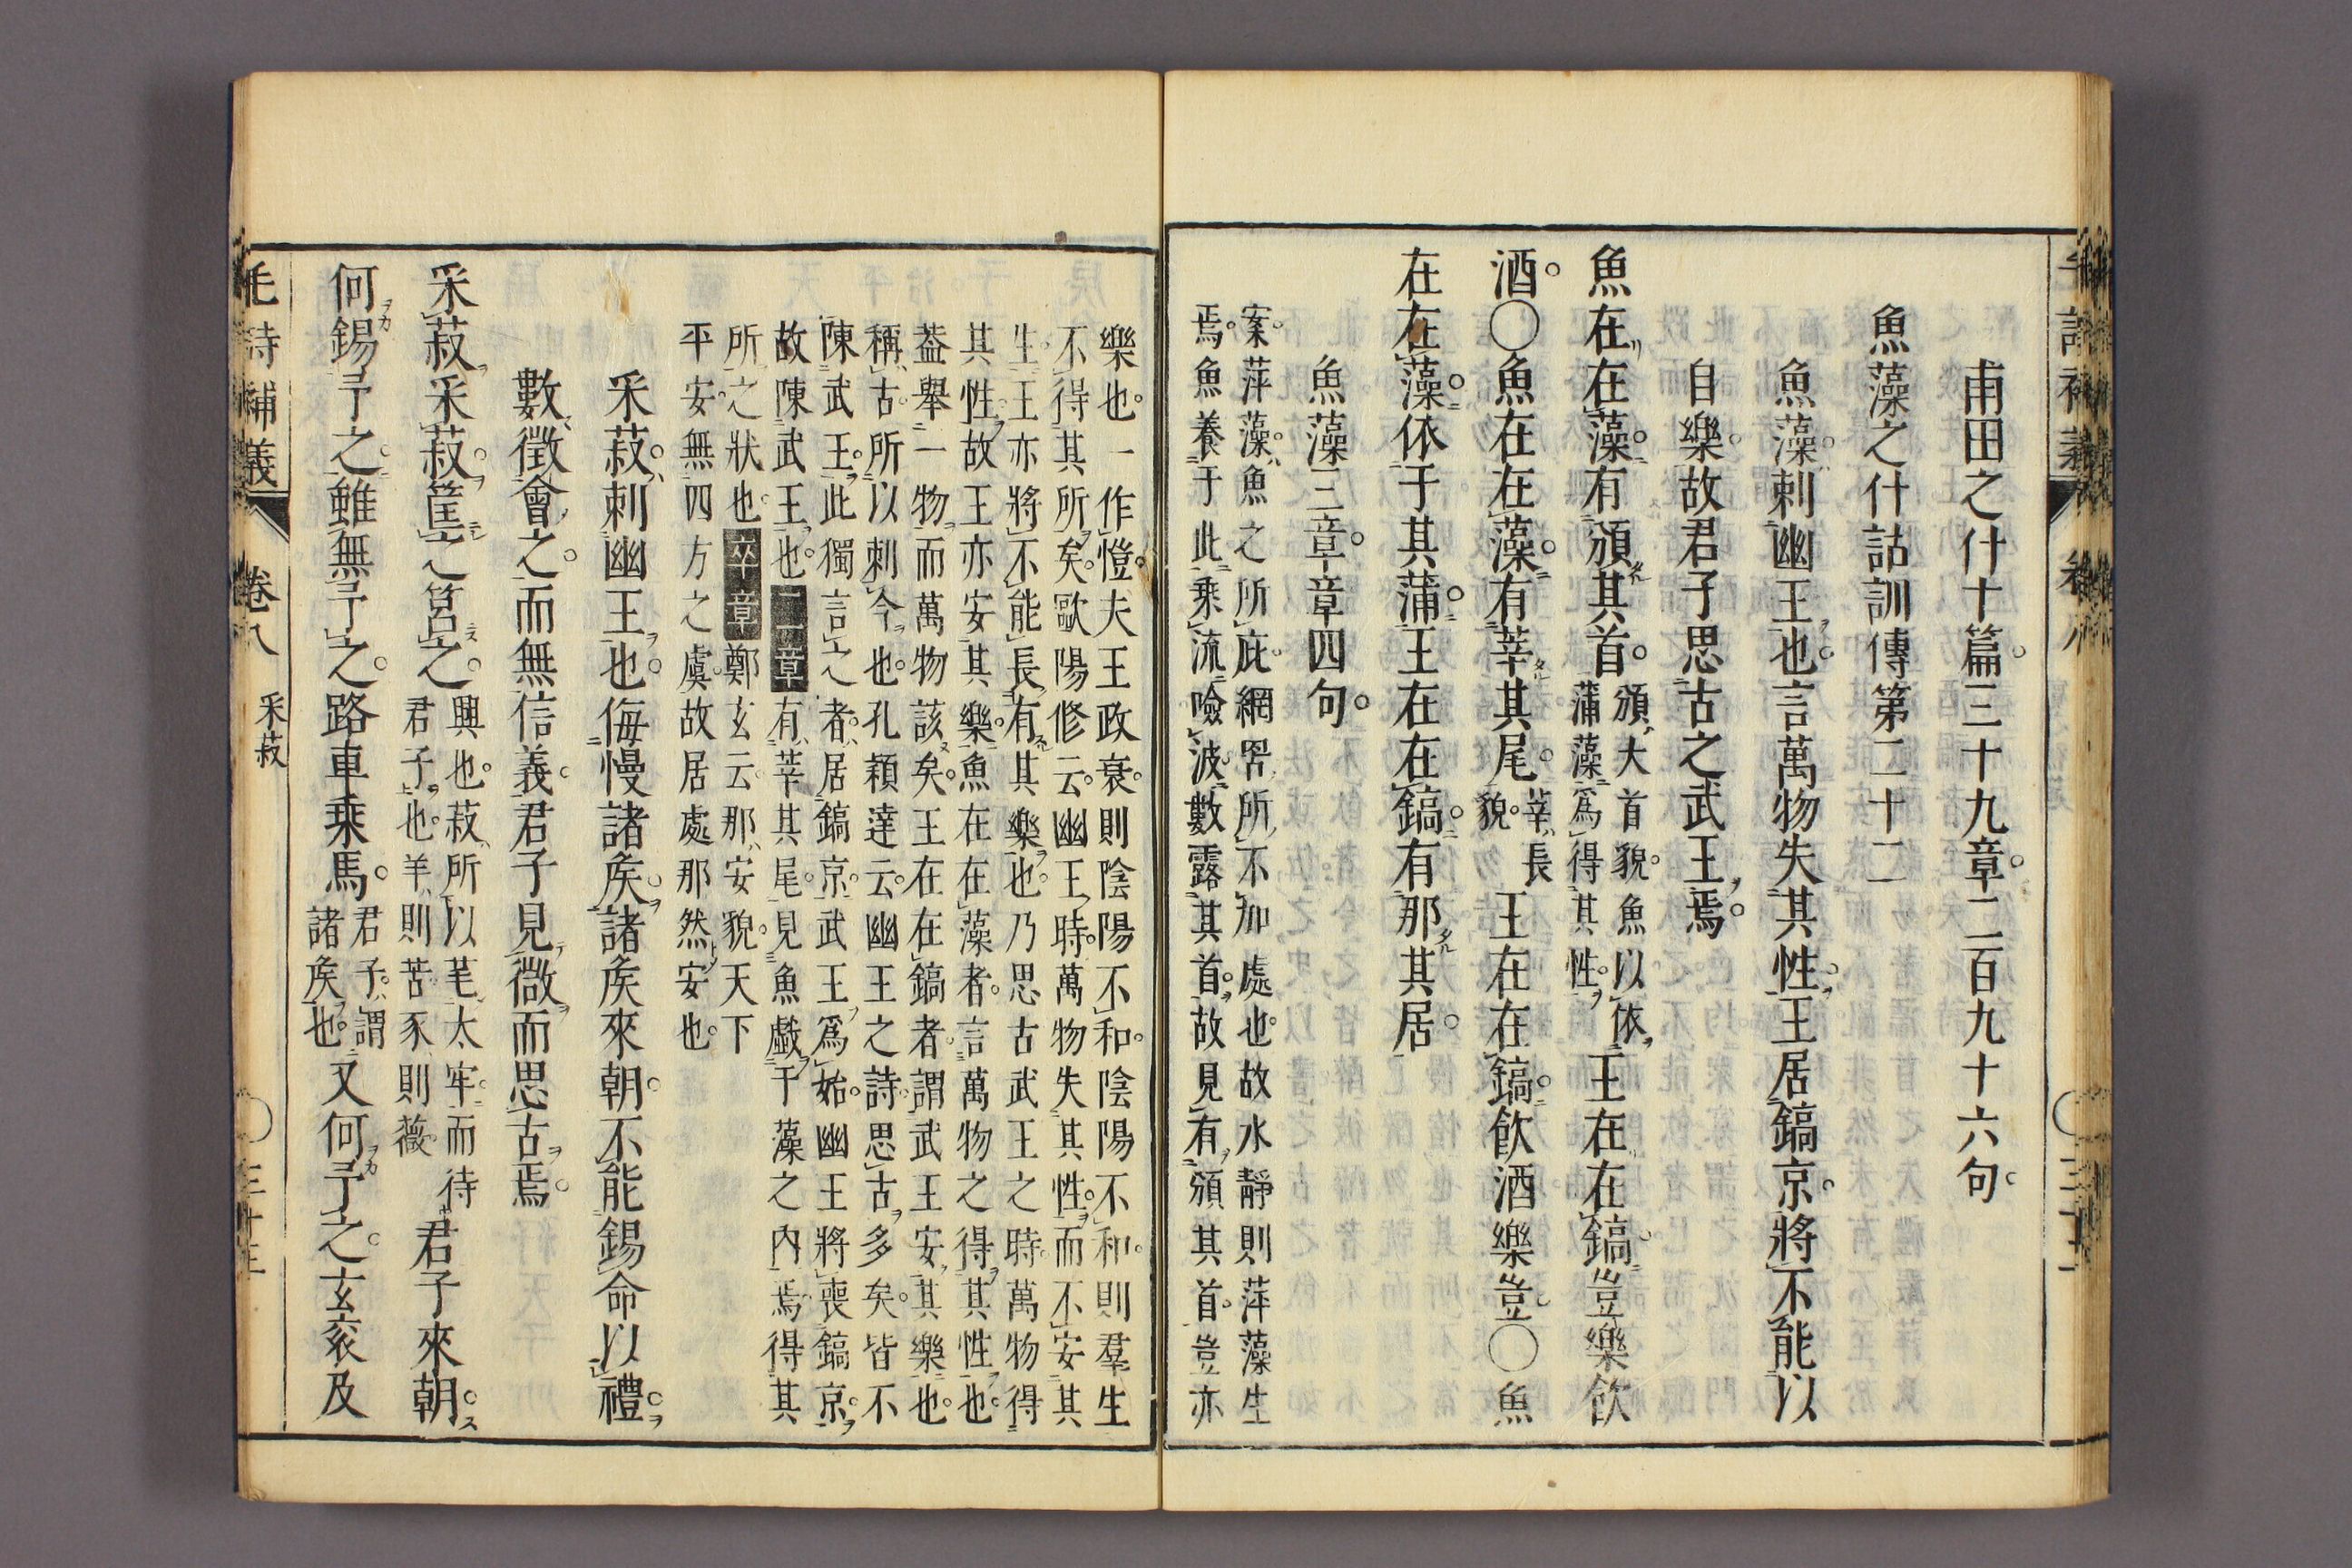 甫田之什十篇三十九章二百九十六句
魚藻之什詁訓傳第二十二
魚藻刺幽王也言萬物失其性王居鎬京將不能以
自樂故君子思古之武王焉
魚在在藻有頒其首頒大首貌魚以依蒲藻爲得其性王在在鎬豈樂飲
酒○魚在在藻有莘其尾莘長貌王在在鎬飲酒樂豈○魚
在在藻依于其蒲王在在鎬有那其居
魚藻三章章四句
案萍藻魚之所庇網罟所不加處也故水靜則萍藻生
焉魚養于此乘流噞波數露其首故見有頒其首豈亦
樂也一作愷夫王政衰則陰陽不和陰陽不和則羣生
不得其所矣歐陽修云幽王時萬物失其性而不安其
生王亦將不能長有其樂也乃思古武王之時萬物得
其性故王亦安其樂魚在在藻者言萬物之得其性也
葢舉一物而萬物該矣王在在鎬者謂武王安其樂也
稱古所以刺今也孔穎達云幽王之詩思古多矣皆不
陳武王此獨言之者居鎬京武王爲始幽王將喪鎬京
故陳武王也二章有莘其尾見魚戲于藻之內焉得其
所之狀也卒章鄭玄云那安貌天下
平安無四方之虞故居處那然安也
采菽刺幽王也侮慢諸矦諸矦來朝不能錫命以禮
數徵會之而無信義君子見微而思古焉
采菽采菽筐之筥之興也菽所以芼太牢而待君子也羊則苦豕則薇君子來朝
何錫予之雖無予之路車乘馬君子謂諸矦也又何予之玄衮及
毛詩補義
卷八
采菽
三十三